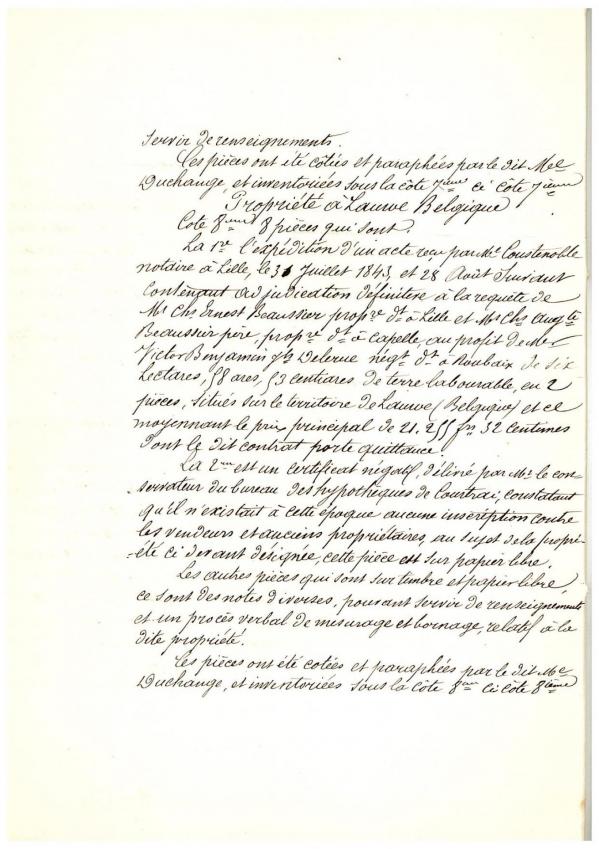 Servir de renseignements.
Ces pièces ont été côtées et paraphées par le dit Me
Duchange, et inventoriées sous la côte 7ème ci côte 7ième
Propriété à Lauwe Belgique
Cote 8ème 8 pièces qui sont.
La 1re l'expédition d'un acte reçu par Me Coustenoble
notaire à Lille, le 31 Juillet 1843, et 28 Août Suivant
Contenant adjudication définitive à la requête de
Mr Chs Ernest Beaussier propre dt à Lille et Mr Chs Augte
Beaussier père, propre dt à Capelle, au profit de Mr
Victor Benjamin Delerue négt dt à Roubaix de six
hectares, 58 ares, 53 centiares de terre labourable, en 2
pièces, situés sur le territoire de Lauwe (Belgique) et ce
moyennant le prix principal de 21.255 frs 32 centimes
dont le dit contrat porte quittance
La 2me est un certificat négatif, délivré par Mr le con-
servateur du bureau des hypothèques de Courtrai, constatant
qu'il n'existait à cette époque aucune inscription contre
les vendeurs et anciens propriétaires, au sujet de la propri-
-été ci devant désignée, cette pièce est sur papier libre.
Les autres pièces qui sont sur timbre et papier libre,
ce sont des notes diverses, pouvant servir de renseignements
et un procès verbal de mesurage et bornage, relatif à la
dite propriété.
Ces pièces ont été cotées et paraphées par le dit Me
Duchange, et inventoriées sous la côte 8me ci côte 8ième